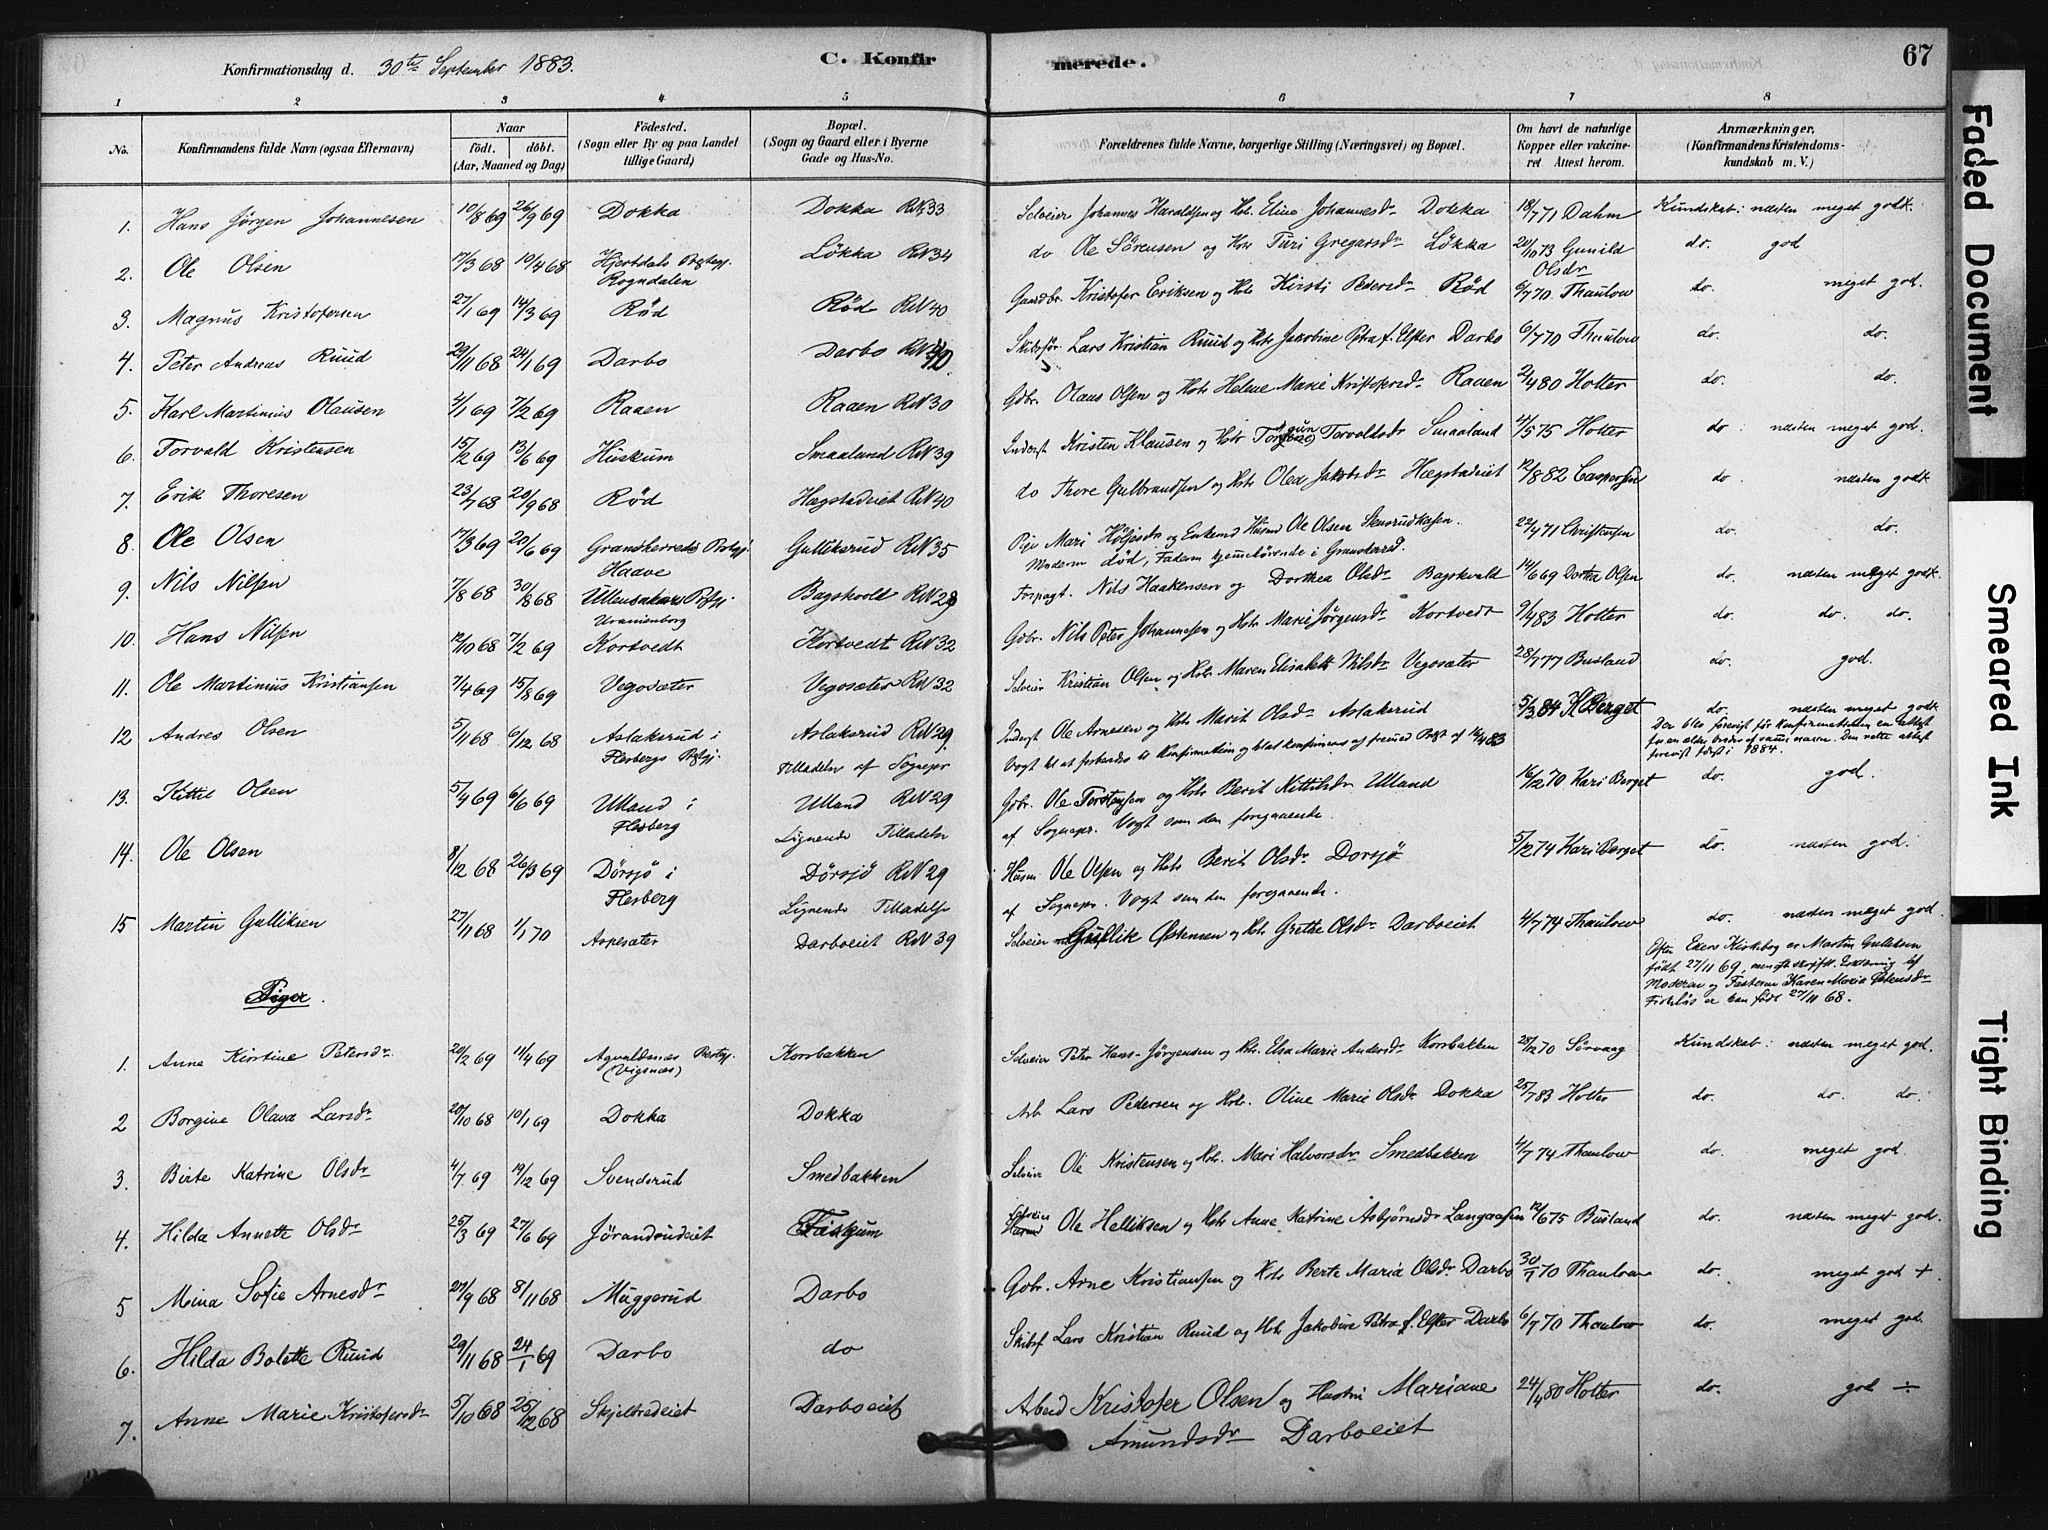 Konfirmationsdag d. 30te September 1883. C. Konfirmerede. 67
1 2 3 4 5 6 7 8
No. Konfirmandens fulde Navn (ogsaa Efternavn) Naar født. døbt. (Aar, Maaned og Dag) Fødested. (Sogn eller By og paa Landet tillige Gaard) Bopæl. (Sogn og Gaard eller i Byerne Gade og Hus-No. Forældrenes fulde Navne, borgerlige Stilling (Næringsvei) og Bopæl. Om havt de naturlige Kopper eller vakcineret Attest herom. Anmærkninger. (Konfirmandens Kristendomskundskab m. V.)
1. Hans Jørgen Johannesen 10/8 69 26/9 69 Dokka Dokka RN33 Selveier Johannes Haraldsen og Hstr Eline Johannesdr Dokka 18/7 71 Dahm Kundskab: næsten meget godt.
2. Ole Olsen 17/3 68 10/4 68 Hjertdals Prstgj. Rogndalen Løkka RN34 do Ole Sörensen og Hstr Turi Gregarsdr Løkka 20/10 73 Gunild Olsdr do. god
3. Magnus Kristofersen 27/1 69 14/3 69 Rød Rød RN40 Gaardbr. Kristofer Eriksen og Hstr Kirsti Pedersdr Rød 6/7 70 Thaulow do. meget god.
4. Peter Andreas Ruud 29/11 68 24/1 69 Darbo Darbo RN40 Skibsfør. Lars Kristian Ruud og Hstr Jakobine Petra f. Elster Darbo 6/7 70 Thaulow do. do.
5. Karl Martinius Olausen 4/1 69 7/2 69 Raaen Raaen RN30 Gdbr. Olaus Olsen og Hstr Helene Marie Kristofersdr Raaen 2/4 80 Holter do. do.
6. Torvald Kristensen 15/2 69 13/6 69 Huskum Smaaland RN39 Inderst Kristen Klausen og Hstr Torvaldsdr Smaaland 4/5 75 Holter do. næsten meget god.
7. Erik Thoresen 23/7 68 20/9 68 Rød Hægstadeiet RN40 do Thore Gulbrandsen og Hstr Olea Jakobsdr Hægstadeiet 12/8 82 Caspersen do. næsten godt
8. Ole Olsen 17/3 69 20/6 69 Gransherreds Prstgj. Haave Gulliksrud RN35 Pige Mari Höljesdr og Enkemd Husmd Ole Olsen Stensrudkåsen. Moderen död, Faderen hjemmehörende i Gransherred. 22/4 71 Christensen do. do.
9. Nils Nilsen 7/8 68 30/8 68 Ullensakers Prstgj. Uranienborg Bagskvold RN28 Forpagt. Nils Haakensen og Dorthea Olsdr Bagskvald 14/6 69 Dortea Olsen do. næsten meget godt.
10. Hans Nilsen 12/10 68 7/2 69 Kortvedt Kortvedt RN32 Gdbr. Nils Peter Johannesen og Hstr Marie Jørgensdr Kortvedt 9/4 83 Holter do. do. do.
11. Ole Martinius Kristiansen 7/4 69 15/8 69 Vegosæter Vegosæter RN32 Selveier Kristian Olsen og Hstr Maren Elisabeth Nilsdr Vegosæter 28/7 77 Busland do. god.
12 Andres Olsen 5/11 68 6/12 68 Aslaksrud i Flesbergs Prstgj. Aslaksrud RN29. Inderst Ole Arnesen og Hstr Marit Olsdr Aslaksrud 5/3 84 K Berget do. næsten meget godt
Tilladelse af Sognepr Vogt til at forberedes til Konfirmation og blive konfirmeret af fremmed Prest af 16/4 83
Der blev forevist før konfirmationen en attest for en ældre broder af samme navn. Den rette attest forevist først i 1884.
13. Kittil Olsen 5/4 69 6/6 69 Ulland i Flesberg Ulland RN29 Gdbr. Ole Torstensen og Hstr Berit Kittilsdr Ulland 16/12 70 Kari Berget do. god.
Lignende Tilladelse af Sognepr. Vogt som den foregaaende.
14. Ole Olsen 8/12 68 26/3 69 Dörsjö i Flesberg Dörsjö RN29 Husm Ole Olsen og Hstr Berit Olsdr Dorsjö 5/12 74 Kari Berget do. næsten god.
Lignende Tilladelse af Sognepr. Vogt som den foregaaende.
15 Martin Gulliksen 27/11 68 1/1 70 Aspesæter Darboeiet RN39 Selveier Gullik Östensen og Hstr Grethe Olsdr Darboeiet 4/7 74 Thaulow do. næsten meget god.
Efter Ekers Kirkebog er Martin Gulliksen født 27/11 69, men eft skriftl. Erklæring af Moderen og Fasteren Karen Marie Östensdr er han født 27/11 68.
Piger.
1. Anne Kirstine Petersdr. 20/2 69 11/4 69 Agvaldsnæs Prstgj. (Vigsnæs) Korsbakken Selveier Peter Hans-Jörgensen og Hstr. Elsa Marie Andersdr Korsbakken 28/12 70 Sørvaag Kundskab: næsten meget god.
2 Borgine Olava Larsdr 20/10 68 10/1 69 Dokka Dokka Arb Lars Pedersen og Hstr. Oline Marie Olsdr Dokka 25/7 83 Holter do. do. do.
3. Birte Katrine Olsdr 4/7 69 19/12 69 Svendsrud Smedbakken Selveier Ole Kristensen og Hstr. Mari Halvorsdr Smedbakken 4/7 74 Thaulow do. meget god.
4. Hilda Annette Olsdr 25/3 69 27/6 69 Jørandrudeiet Fiskum Selveier Ole Helliksen og Hstr Anne Katrine Asbjørnsdr Langaasen 12/6 75 Busland do. næsten meget god.
5 Mina Sofie Arnesdr 20/9 68 8/11 68 Muggerud Darbo Gdbr. Arne Kristiansen og Hstr Berte Maria Olsdr Darbo 30/7 70 Thaulow do. meget god +
6. Hilda Bolette Ruud 29/11 68 24/1 69 Darbo do Skibsf Lars Kristian Ruud og Hstr Jakobine Petra f. Elster Darbo 6/7 70 Thaulow do. meget god
7. Anne Marie Kristofersdr 5/10 68 25/12 68 Skjelbredeiet Darboeiet Arbeid Kristofer Olsen og Hustru Mariane Amundsdr Darboeiet 24/4 80 Holter do. god ÷
Faded Document
Smeared Ink
Tight Binding